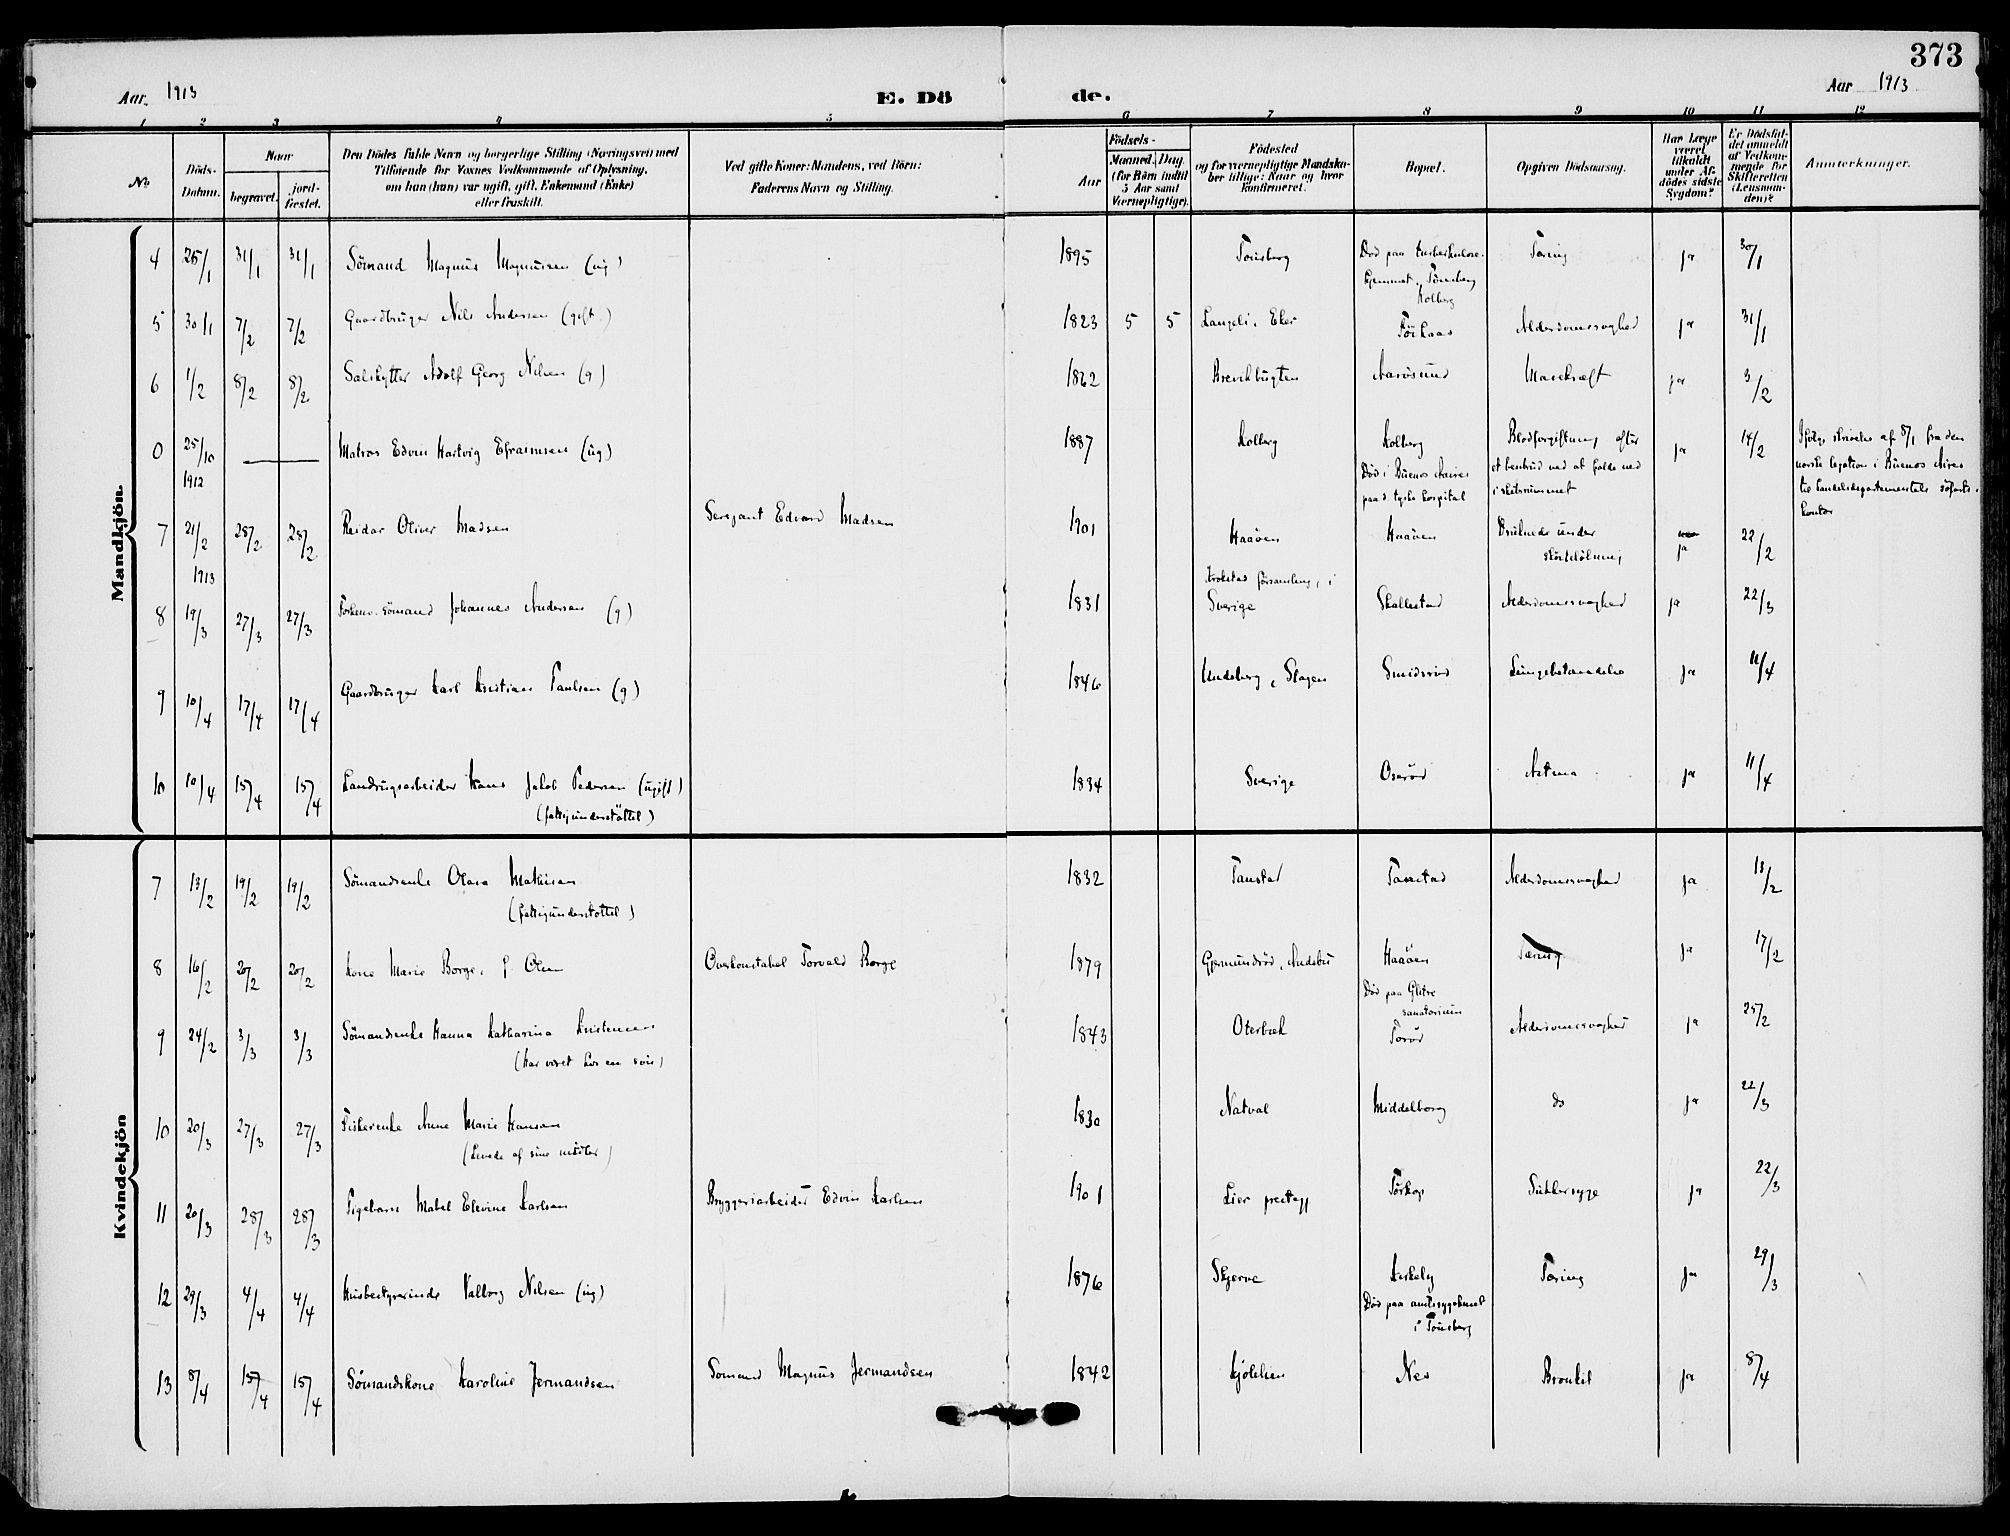 373
Aar 1913 E. Dö de. Aar 1913
1 2 3 4 5 6 7 8 9 10 11 12
No
Döds-Datum.
Naar
begravet.
jord-fæstet.
Den Dödes fulde Navn og borgerlige Stilling (Næringsvei) med
Tilföiende for Voxnes Vedkommende af Oplysning,
om hun (han) var ugift, gift, Enkemand (Enke)
eller fraskilt.
Ved gifte Koner: Mandens, ved Börn:
Faderens Navn og Stilling.
Födsels-
Aar
Maaned. Dag.
(for Börn indtil
5 Aar samt
Værnepligtige).
Födested
og for værnepligtige Mandskaber tillige: Naar og hvor
konfirmeret.
Bopæl.
Opgiven Dödsaarsag.
Har Læge
været
tilkaldt
under Afdödes sidste
Sygdom?
Er Dödsfaldet anmeldt
af Vedkommende for
Skifteretten
(Lensmanden)?
Anmærkninger.
Mandkjön.
4 25/1 31/1 31/1 Sömand Magnus Magnussen (ug) 1895 Tönsberg Död paa tuberkulosehjemmet, Tönsberg Tæring ja 30/1
Kolberg
5 30/1 7/2 7/2 Gaardbruger Nils Andersen (gift.) 1823 5 5 Langeli, Eker Alderdomssvaghed ja 31/1
6 1/2 8/2 8/2 Sælskytter Adolf Georg Nilsen (g) 1862 Brevikbugten Aarösund Mavekræft ja 3/2
0 25/10 1912 Matros Edvin Hartvig Efraimsen (ug) 1887 Kolberg Kolberg Blodforgiftning efter ja 14/2 Ifölge skrivelse af 8/1 fra den
Död i Buenos Aaires et benbrud ved at falde ned norske legation i Buenos Aires
paa d. tyske hospital i skibsrummet til handelsdepartementets söfartskontor
7 21/2 1913 28/2 28/2 Reidar Oliver Madsen Sersjant Edvard Madsen 1901 Haaöen Haaöen Druknede under ja 22/2
8 19/3 27/3 27/3 Forhenv. sömand Johannes Andersen (g) 1831 Krokstad forsamling, i
Sverige Skallestad Alderdomssvaghed ja 22/3
9 10/4 17/4 17/4 Gaardbruger Karl Kristian Paulsen (g) 1846 Undeberg, Slagen Smidsröd Lungebetændelse ja 11/4
10 10/4 15/4 15/4 Landbrugsarbeider Hans Jakob Pedersen (ugift) 1834 Sverige Oseröd Astma ja 11/4
(fattigunderstöttet)
Kvindekjön
7 13/2 19/2 19/2 Sömandsenke Olava Mathisen 1832 Tanstad Alderdomssvaghed ja 18/2
(fattigunderstöttet)
8 16/2 20/2 20/2 Kone Marie Borge, f. Olsen Overkonstabel Torvald Borge 1879 Gjermundröd, Andebu Haaöen Tæring ja 17/2
Död paa Glitre
sanatorium
9 24/2 3/3 3/3 Sömandsenke Hanna Katharina Kristensen 1843 Oterbæk Toröd Alderdomssvaghed ja 25/2
(har været hos en svig)
10 20/3 27/3 27/3 Fiskerenke Anne Marie Hansen 1830 Natval Middelborg do ja 22/3
(Levede af sine midler)
11 20/3 28/3 28/3 Pigebarn Mabel Elevine Karlsen Bryggeriarbeider Edvin Karlsen 1901 Lier prestegj Torkop Sukkersyge ja 22/3
12 29/3 4/4 4/4 Husbestyrerinde Valborg Nilsen (ug) 1876 Skjerve Kirkely Tæring ja 29/3
Död paa amtssygehuset
i Tönsberg
13 8/4 15/4 15/4 Sömandskone Karoline Jermandsen Sömand Magnus Jermandsen 1842 Nes Bronkit ja 8/4